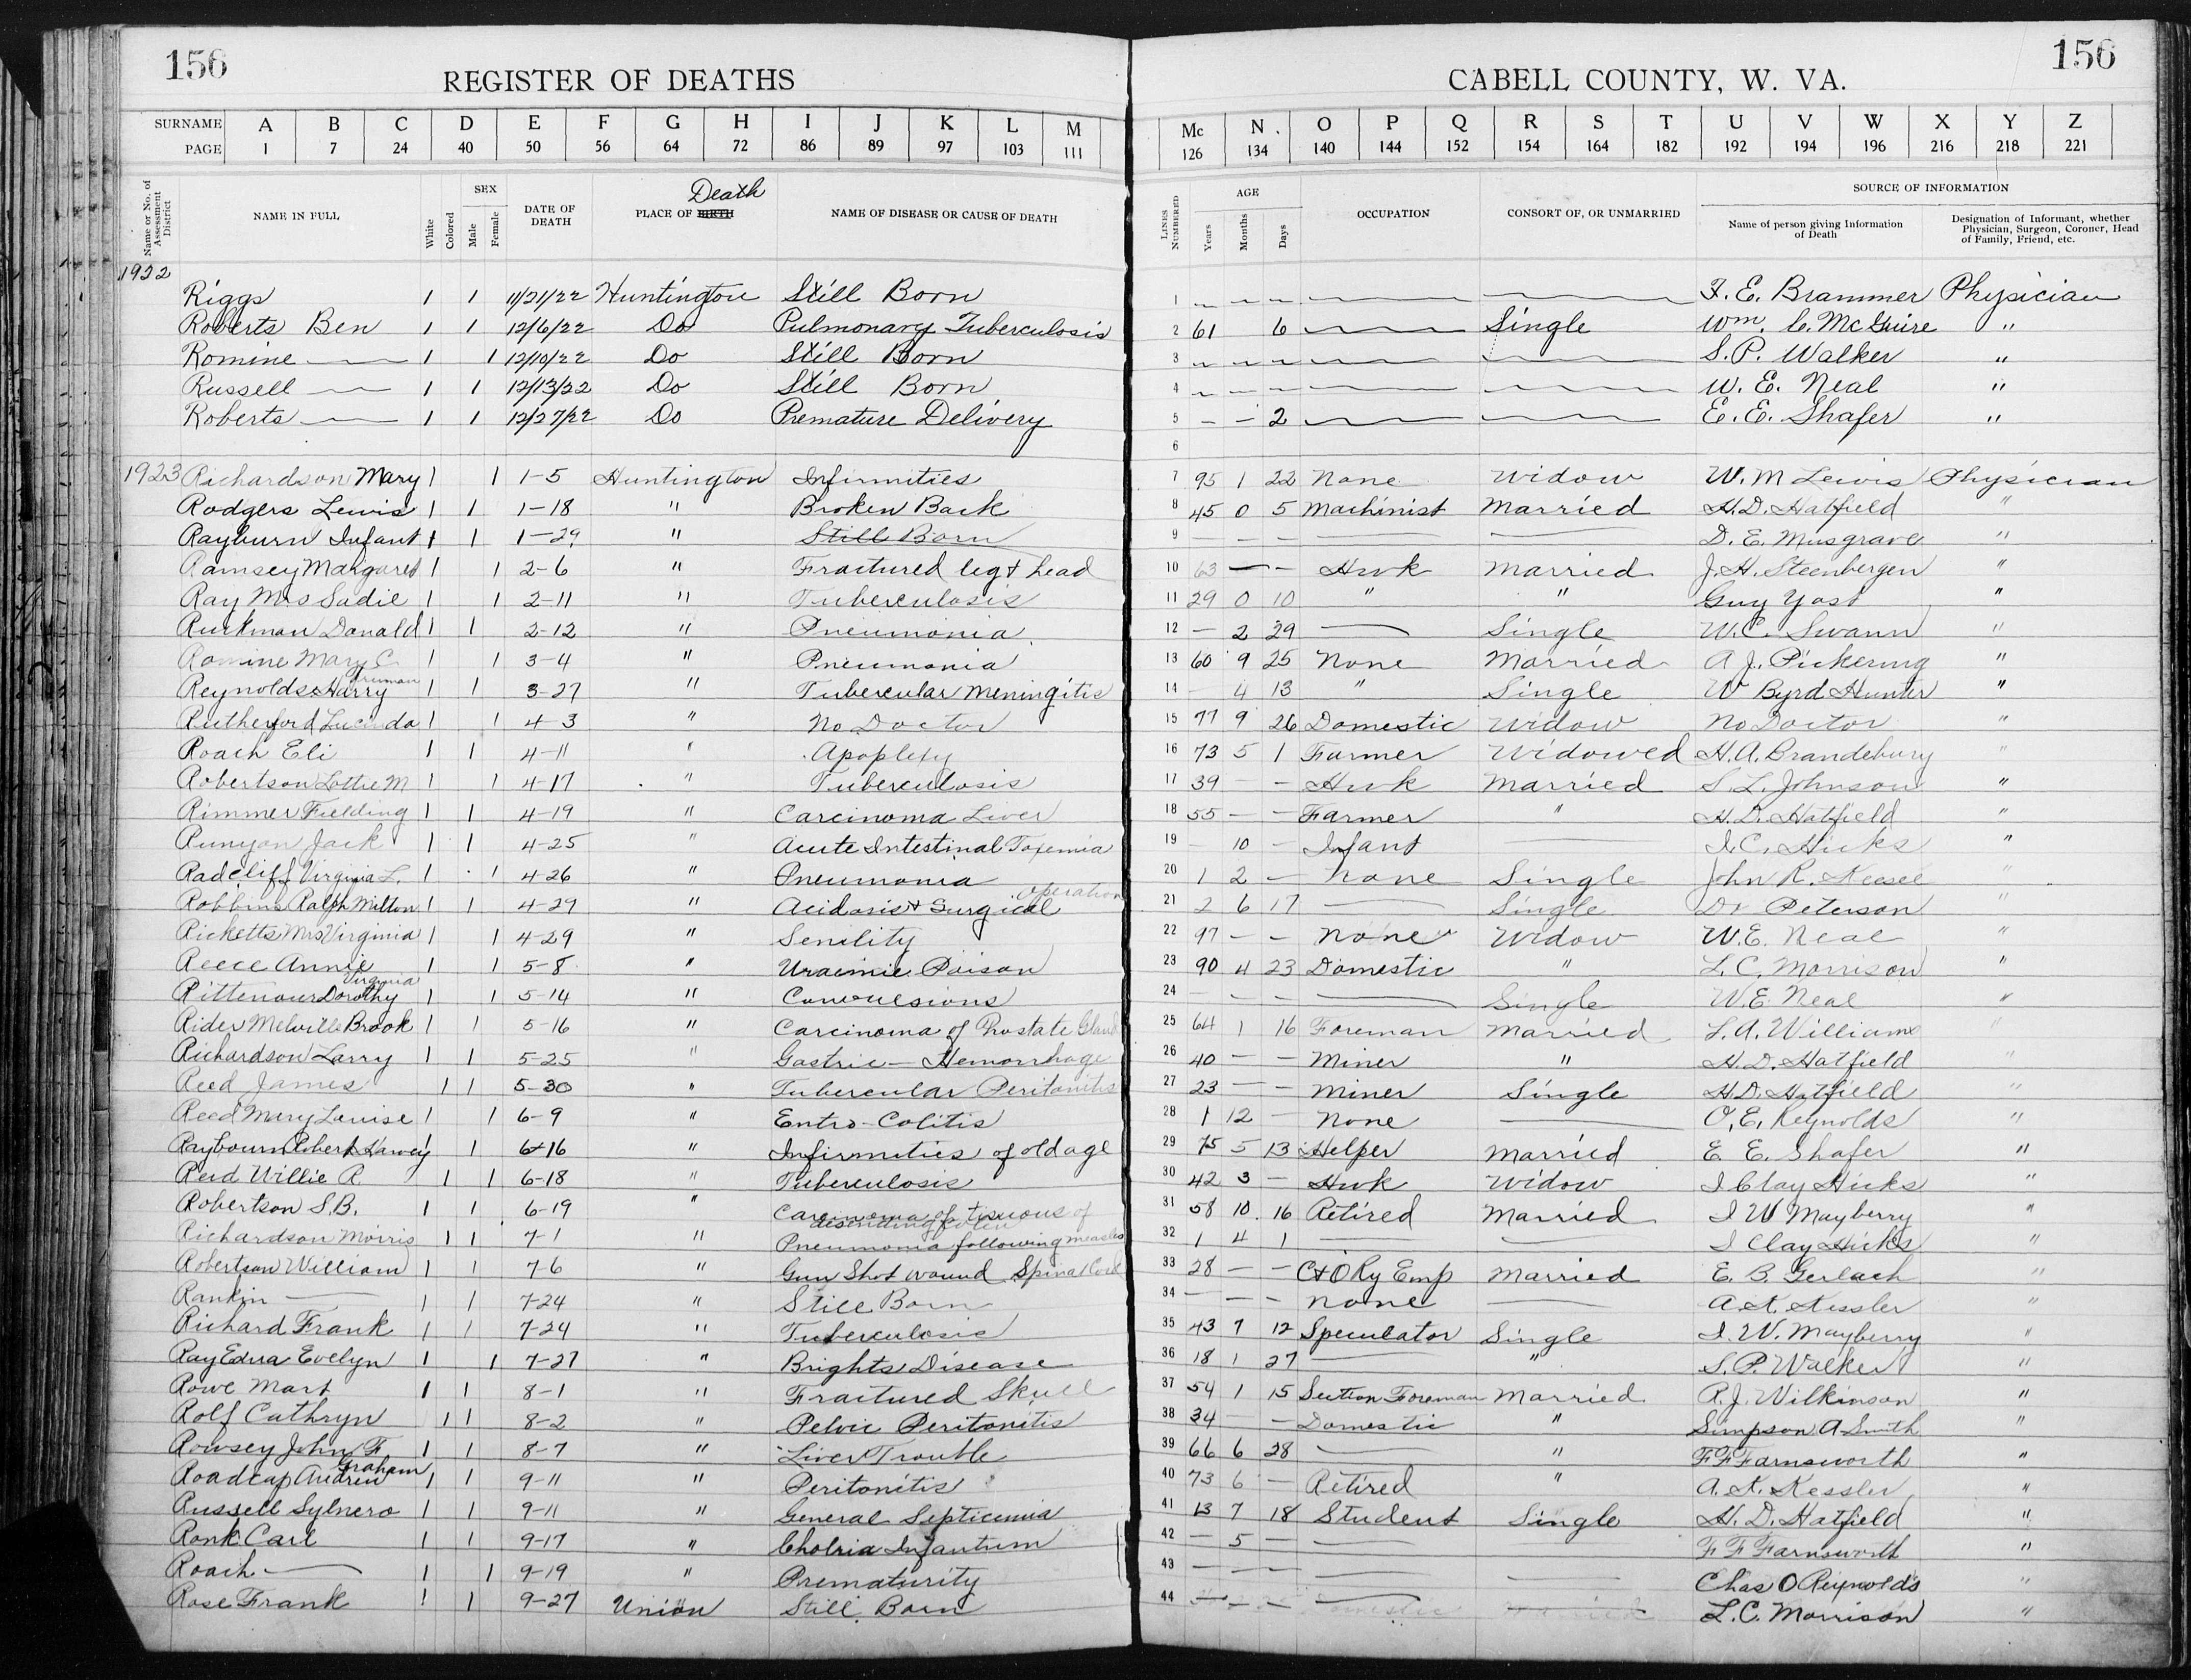 156
REGISTER OF DEATHS
SURNAME A B C D E F G H I J K L M
PAGE 1 7 24 40 50 56 64 72 86 89 97 103 111
Name or No. of Assessment District
NAME IN FULL
White
Colored
SEX
Male
Female
DATE OF DEATH
PLACE OF BIRTH Death
NAME OF DISEASE OR CAUSE OF DEATH
1922
Riggs 1 1 11/21/22 Huntington Still Born
Roberts Ben 1 1 12/6/22 Do Pulmonary Tuberculosis
Romine — 1 1 12/10/22 Do Still Born
Russell — 1 1 12/13/22 Do Still Born
Roberts — 1 1 12/27/22 Do Premature Delivery
1923 Richardson Mary 1 1 1-5 Huntington Infirmities
Rodgers Lewis 1 1 1-18 " Broken Back
Rayburn Infant 1 1 1-29 " Still Born
Ramsey Margaret 1 1 2-6 " Fractured leg + head
Ray Mrs Sadie 1 1 2-11 " Tuberculosis
Donald 1 1 2-12 " Pneumonia
Romine Mary C. 1 1 3-4 " Pneumonia
Reynolds Harry Truman 1 1 3-27 " Tubercular Meningitis
Rutherford Lucinda 1 1 4-3 " No Doctor
Roach Eli 1 1 4-11 " Apoplexy
Robertson Lottie M 1 1 4-17 " Tuberculosis
Rimmer Fielding 1 1 4-19 " Carcinoma Liver
Runyon Jack 1 1 4-25 " Acute Intestinal Toxemia
Radcliff Virginia L. 1 1 4-26 " Pneumonia
Robbins Ralph Milton 1 1 4-29 " Acidosis + Surgical operation
Ricketts Mrs Virginia 1 1 4-29 " Senility
Reece Annie 1 1 5-8 " Uraemic Poison
Rittenour Dorothy Virginia 1 1 5-14 " Convulsions
Rider Melville Brook 1 1 5-16 " Carcinoma of Prostate Gland
Richardson Larry 1 1 5-25 " Gastric — Hemorrhage
Reed James 1 1 5-30 " Tubercular Peritonitis
Reed Mary Louise 1 1 6-9 " Entro-Colitis
Raybourn Robert Harvey 1 1 6-16 " Infirmities of old age
Reid Willie R. 1 1 6-18 " Tuberculosis
Robertson S.B. 1 1 6-19 " Carcinoma of tissuous of
Richardson Morris 1 1 7-1 " Pneumonia following measles
Robertson William 1 1 7-6 " Gun Shot wound Spinal Cord
Rankin — 1 1 7-24 " Still Born
Richard Frank 1 1 7-24 " Tuberculosis
Ray Edna Evelyn 1 1 7-27 " Brights Disease
Rowe Mart 1 1 8-1 " Fractured Skull
Rolf Cathryn 1 1 8-2 " Pelvic Peritonitis
Rowsey John F. 1 1 8-7 " Liver Trouble
Roadcap Andrew Graham 1 1 9-11 " Peritonitis
Russell Sylnero 1 1 9-11 " General Septicemia
Ronk Carl 1 1 9-17 " Cholria Infantum
Roach — 1 1 9-19 " Prematurity
Rose Frank 1 1 9-27 Union Still Born
156
CABELL COUNTY, W. VA.
Mc N O P Q R S T U V W X Y Z
126 134 140 144 152 154 164 182 192 194 196 216 218 221
LINES NUMBERED
AGE
Years
Months
Days
OCCUPATION
CONSORT OF, OR UNMARRIED
SOURCE OF INFORMATION
Name of person giving Information of Death
Designation of Informant, whether Physician, Surgeon, Coroner, Head of Family, Friend, etc.
1 — — — — — F. E. Brammer Physician
2 61 6 — Single Wm. C. McGuire "
3 — — — — — S. P. Walker "
4 — — — — — W. E. Neal "
5 — — 2 — — E. E. Shafer "
6
7 95 1 22 None Widow W. M Lewis Physician
8 45 0 5 Machinist Married H. D. Hatfield "
9 — — — — — D. E. Musgrave "
10 63 — — Hwk Married J. H. Steenbergen "
11 29 0 10 " " Guy Yost "
12 — 2 29 — Single W. C. Swann "
13 60 9 25 None Married A J. Pickering "
14 — 4 13 " Single W Byrd Hunter "
15 77 9 26 Domestic Widow No Doctor "
16 73 5 1 Farmer Widowed H. A. Brandebury "
17 39 — — Hwk Married S. L. Johnson "
18 55 — — Farmer " H. D. Hatfield "
19 — 10 — Infant — I. C. Hicks "
20 1 2 — None Single John R. Keesee "
21 2 6 17 — Single Dr Peterson "
22 97 — — None Widow W. E. Neal "
23 90 4 23 Domestic " L. C. Morrison "
24 — — — — Single W. E. Neal "
25 64 1 16 Foreman Married L. A. Williams "
26 40 — — Miner " H. D. Hatfield "
27 23 — — Miner Single H. D. Hatfield "
28 1 12 — None — O. E. Reynolds "
29 75 5 13 Helper Married E. E. Shafer "
30 42 3 — Hwk Widow I Clay Hicks "
31 58 10 16 Retired Married I W Mayberry "
32 1 4 1 — — I Clay Hicks "
33 28 — — C+O Ry Emp Married E. B. Gerlach "
34 — — — None — A. K. Kessler "
35 43 7 12 Speculator Single I. W. Mayberry "
36 18 1 27 — " S. P. Walker "
37 54 1 15 Section Foreman Married R. J. Wilkinson "
38 34 — — Domestic " Simpson A Smith "
39 66 6 28 — " F F Farnsworth "
40 73 6 — Retired " A. K. Kessler "
41 13 7 18 Student Single H. D. Hatfield "
42 — 5 — — F F Farnsworth "
43 — — — — — Chas O Reynolds "
44 — — — — — L. C. Morrison "